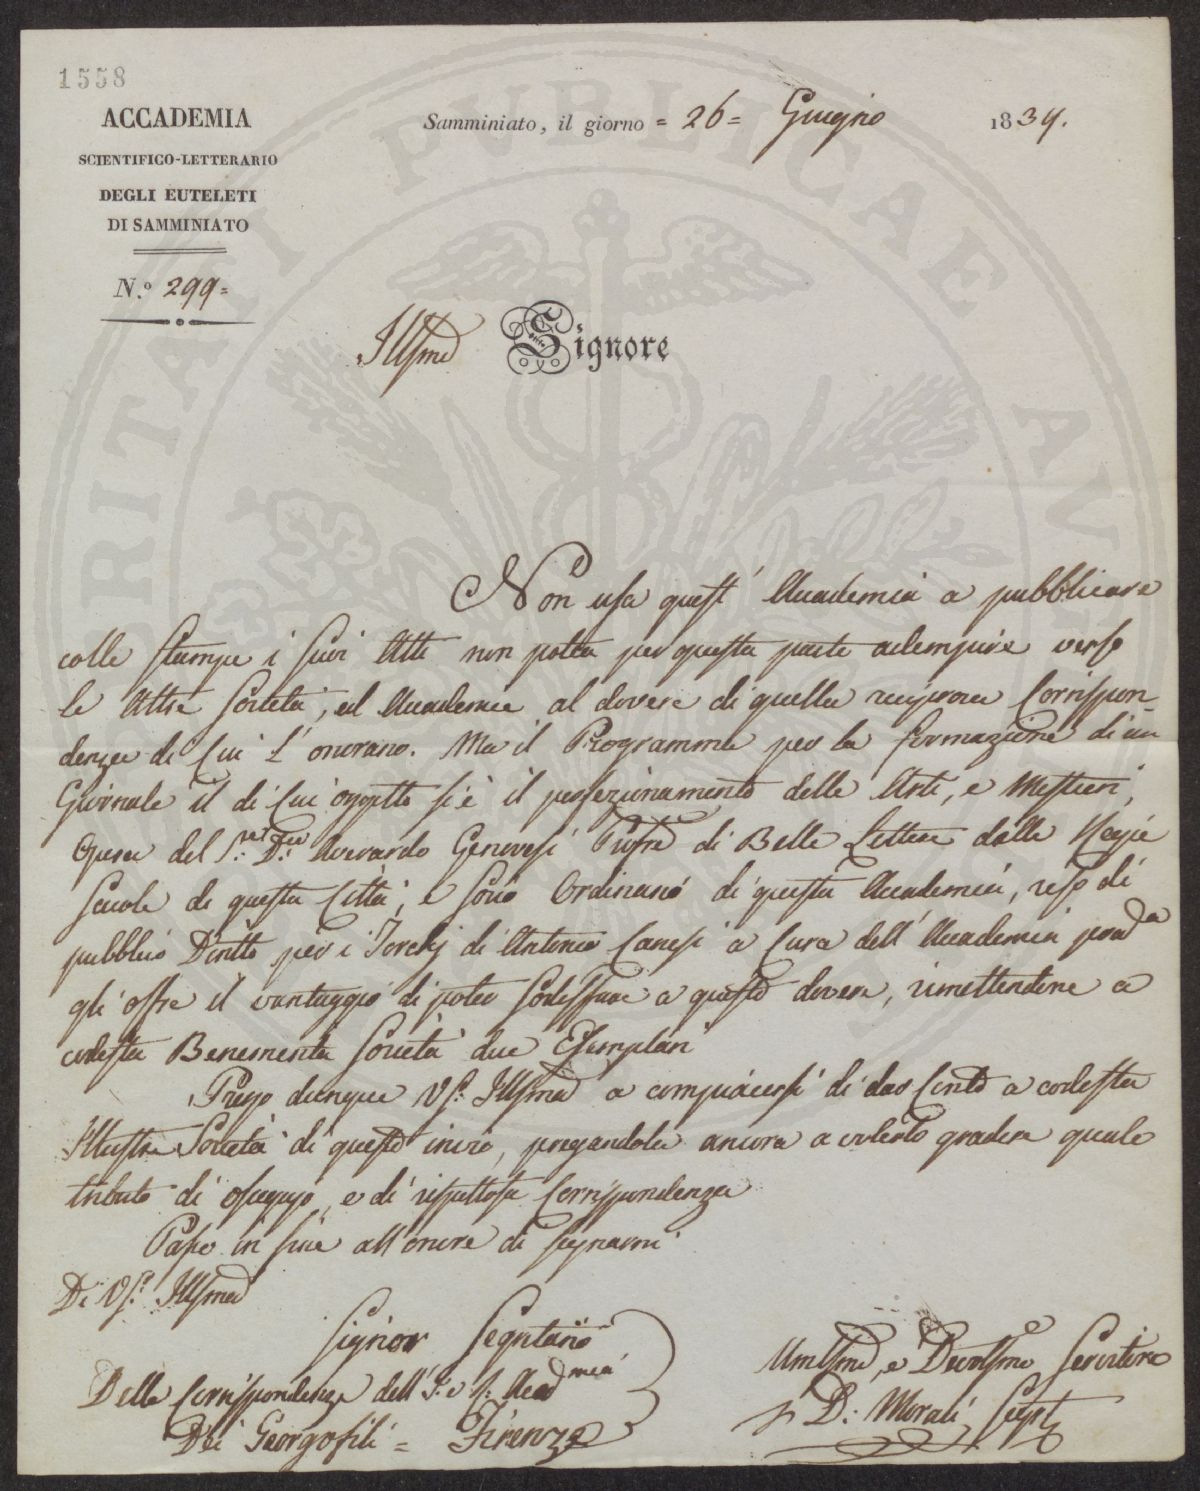 1558
ACCADEMIA
SCIENTIFICO-LETTERARIO
DEGLI EUTELETI
DI SAMMINIATO
N.º 299=
Samminiato, il giorno = 26 = Giugno 1834.
Illsmo Signore
Non usa quest' Accademia a pubblicare
colle Stampe i suoi Atti non potea per questa parte adempire verso
le Altre Società, ed Accademie al dovere di quella reciproca Corrispon-
denza di cui L' onorano. Ma il Programma per la formazione di un
Giornale il di cui oggetto si è il perfezionamento delle Arti, e Mestieri,
Opera del Sig. Dre Averardo Genovesi Profre di Belle Lettere delle Regie
Scuole di questa Città, e Socio Ordinario di questa Accademia, reso di
pubblico Diritto per i Torchj di Antonio Canesi a Cura dell' Accademia
gli offre il vantaggio di poter Sodisfare a questo dovere, rimettendone a
codesta Benemerita Società due Esemplari
Prego dunque VS. Illsma a compiacersi di dar Conto a codesta
Illustre Società di questo invio, pregandola ancora a volerlo gradire quale
tributo di ossequio, e di rispettosa Corrispondenza
Passo in fine all' onore di segnarmi
Di VS. Illsma
Signor Segretario
Della Corrispondenza dell' I. e R. Accadmia
Dei Georgofili = Firenze
Umilsmo, e Devotsmo Servitore
D. Morali Segret
PUBLICAE